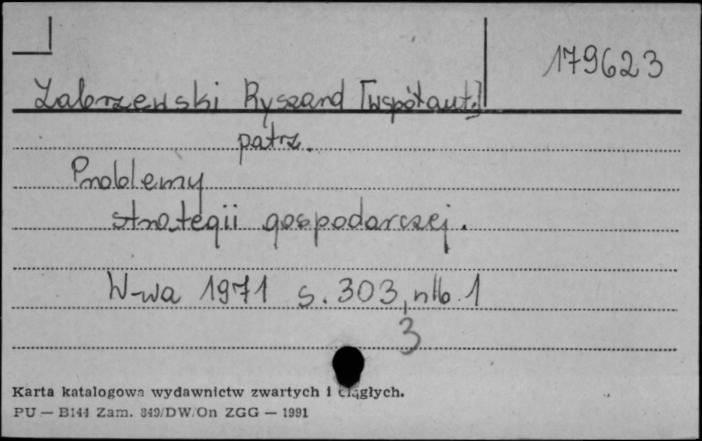 179623
Zabrzewski Ryszard [współaut.]
patrz.
Problemy
strategii gospodarczej.
W-wa 1971 s. 303, nlb. 1
3
Karta katalogowa wydawnictw zwartych i ciągłych.
PU — B144 Zam. 349/DW/On ZGG — 1991